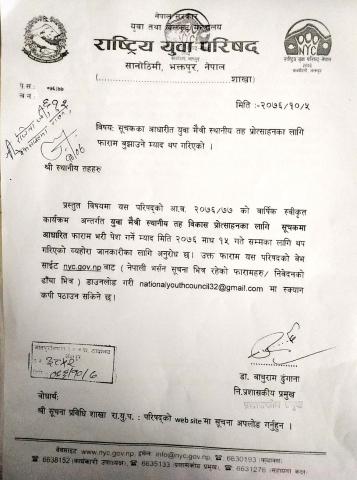 नेपाल सरकार
युवा तथा खेलकुद मन्त्रालय
राष्ट्रिय युवा परिषद
सानोठिमी, भक्तपुर, नेपाल
(.............................. शाखा)
NYC
राष्ट्रिय युवा परिषद नेपाल
प.सं.: ०७६/७७
च.नं.
मिति :-२०७६/१०/५
विषय: सूचकका आधारीत युवा मैत्री स्थानीय तह प्रोत्साहनका लागि
फाराम बुझाउने म्याद थप गरिएको ।
श्री स्थानीय तहहरु
प्रस्तुत विषयमा यस परिषद्को आ.व. २०७६/७७ को वार्षिक स्वीकृत
कार्यक्रम अन्तर्गत युवा मैत्री स्थानीय तह विकास प्रोत्साहनका लागि सूचकमा
आधारित फाराम भरी पेश गर्ने म्याद मिति २०७६ माघ १५ गते सम्मका लागि थप
गरिएको व्यहोरा जानकारीका लागि अनुरोध छ। उक्त फाराम यस परिषद्को वेभ
साईट nyc.gov.np बाट ( नेपाली भर्सन सूचना भित्र रहेको फारामहरु/ निवेदनको
ढाँचा भित्र ) डाउनलोड गरी nationalyouthcouncil32@gmail.com मा स्क्यान
कपी पठाउन सकिने छ ।
डा. बाबुराम ढुंगाना
नि.प्रशासकीय प्रमुख
बोधार्थ:
श्री सूचना प्रविधि शाखा रा.यु.प. : परिषद्को web site मा सूचना अपलोड गर्नुहुन ।
वेबसाइट www.nyc.gov.np, इमेल: info@nyc.gov.np, ☎ 6630193 (फ्याक्स)
☎ 6638152 (कार्यकारी उपाध्यक्ष), ☎ 6635133 (प्रशासकीय प्रमुख), ☎ 6631276